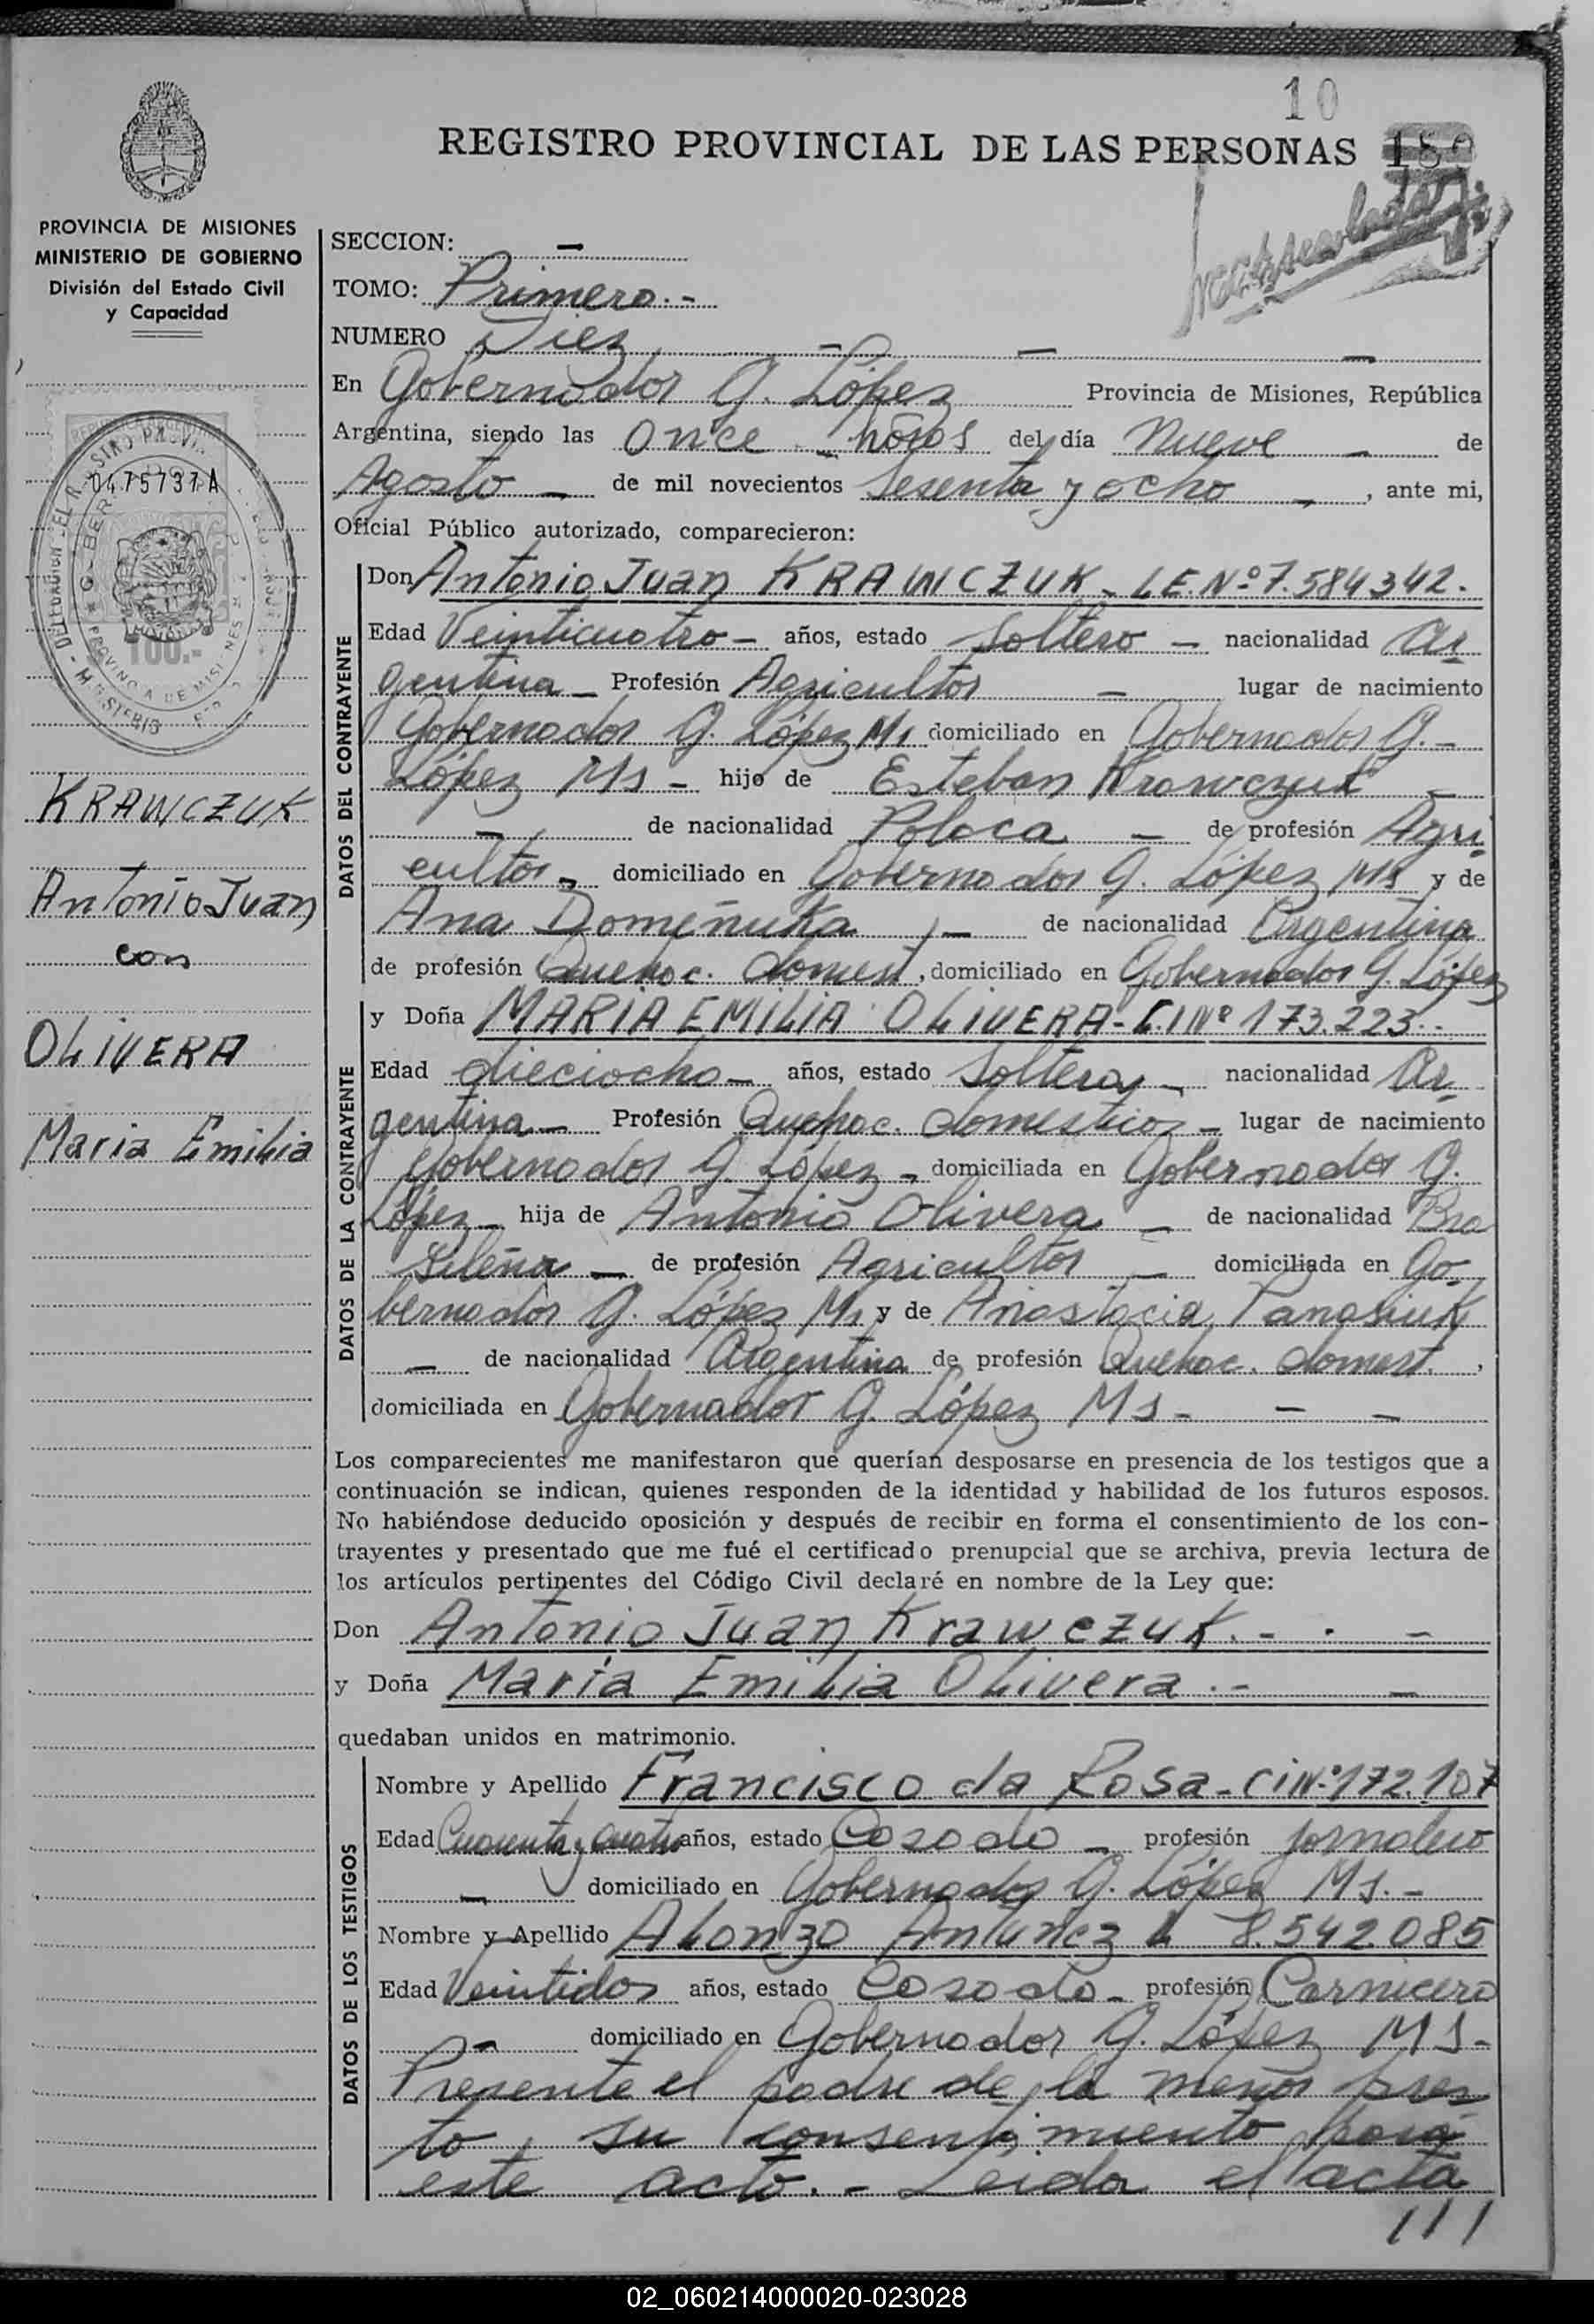 10
REGISTRO PROVINCIAL DE LAS PERSONAS 180
PROVINCIA DE MISIONES
MINISTERIO DE GOBIERNO
División del Estado Civil
y Capacidad
0475737A
100.-
KRAWCZUK
Antonio Juan
con
OLIVERA
Maria Emilia
SECCION: —
TOMO: Primero.-
NUMERO Diez — — —
En Gobernador G. López Provincia de Misiones, República
Argentina, siendo las Once - horas del día Nueve — de
Agosto — de mil novecientos Sesenta y ocho —, ante mi,
Oficial Público autorizado, comparecieron:
DATOS DEL CONTRAYENTE
Don Antonio Juan KRAWCZUK - L.E. Nº 7.584342.
Edad Veinticuatro — años, estado Soltero — nacionalidad Ar
gentina — Profesión Agricultor — lugar de nacimiento
Gobernador G. López Ms domiciliado en Gobernador G. -
López Ms - hijo de Esteban Krawczuk -
— de nacionalidad Polaca — de profesión Agri
cultor - domiciliado en Gobernador G. López Ms y de
Ana Domeñuka, — de nacionalidad Argentina
de profesión Quehac. domest, domiciliado en Gobernador G. López
DATOS DE LA CONTRAYENTE
y Doña MARIA EMILIA OLIVERA - C.I Nº 173.223.-
Edad dieciocho — años, estado Soltera, - nacionalidad Ar
gentina — Profesión Quehac. domesticos - lugar de nacimiento
Gobernador G. López - domiciliada en Gobernador G.
López - hija de Antonio Olivera — de nacionalidad Bra
sileña — de profesión Agricultor — domiciliada en Go-
bernador G. López Ms y de Anastacia Panasiuk
— de nacionalidad Argentina de profesión Quehac. domest. ,
domiciliada en Gobernador G. López MS - — —
Los comparecientes me manifestaron que querían desposarse en presencia de los testigos que a
continuación se indican, quienes responden de la identidad y habilidad de los futuros esposos.
No habiéndose deducido oposición y después de recibir en forma el consentimiento de los con-
trayentes y presentado que me fué el certificado prenupcial que se archiva, previa lectura de
los artículos pertinentes del Código Civil declaré en nombre de la Ley que:
Don Antonio Juan Krawczuk. - . —
y Doña Maria Emilia Olivera .- —
quedaban unidos en matrimonio.
DATOS DE LOS TESTIGOS
Nombre y Apellido Francisco da Rosa - CiNº 172.107
Edad Cuarenta y cuatro años, estado Casado — profesión jornalero
— domiciliado en Gobernador G. López MS. -
Nombre y Apellido Alonzo Antunez L 8.542.085
Edad Veintidos años, estado Casado - profesión Carnicero
— domiciliado en Gobernador G. López MS-
Presente el padre de la menor pres
to, su consentimiento para
este acto. - Leida el acta
///
02_060214000020-023028